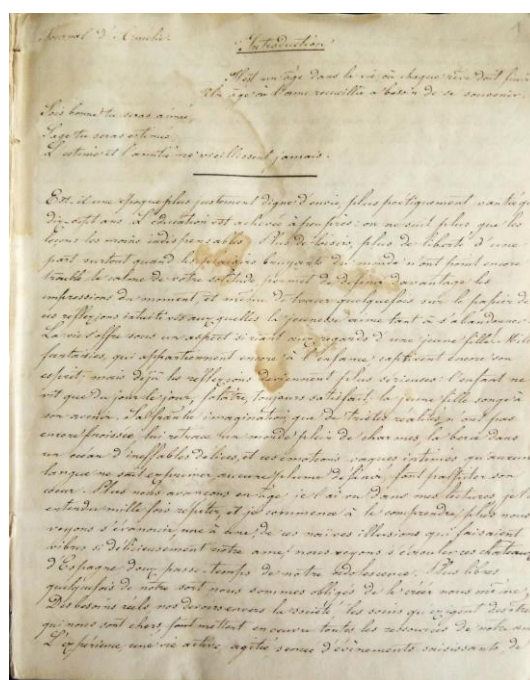 Journal d'Amélie.
Introduction
Il est un âge dans la vie où chaque rêve doit finir
Un âge où l'âme recueillie a besoin de se souvenir.
Sois bonne tu seras aimée,
Sage tu seras estimée
L'estime et l'amitié ne vieillissent jamais.
Est-il une époque plus justement digne d'envie plus poétiquement vantée que
dix-sept ans. L'éducation est achevée à peu près: on ne suit plus que les
leçons les moins indispensables. Plus de loisir, plus de liberté d'une
part surtout quand les plaisirs bruyants du monde n'ont point encore
troublé le calme de votre solitude permet de définir davantage les
impressions du moment, et même de tracer quelquefois sur le papier de
ces réflexions auxquelles la jeunesse aime tant à s'abandonner.
La vie s'offre sous un aspect si riant aux regards d'une jeune fille. Mille
fantaisies, qui appartiennent encore à l'enfance captivent encore son
esprit, mais déjà les réflexions deviennent plus sérieuses: l'enfant ne
vit que du jour le jour, folâtre, toujours satisfait, la jeune fille songe à
son avenir. Sa fraîche imagination que de tristes réalités n'ont pas
encore froissée, lui retrace un monde plein de charmes, la berce dans
un océan d'ineffables délices, et ces émotions vagues intimes qu'aucune
langue ne sait exprimer, aucune plume définir, font palpiter son
cœur. Plus nous avançons en âge, je l'ai vu dans mes lectures, je l'ai
entendu mille fois répéter, et je commence à le comprendre, plus nous
voyons s'évanouir une à une, de ces naïves illusions qui faisaient
vibrer si délicieusement notre âme, nous voyons s'écrouler ces châteaux
d'Espagne doux passe-temps de notre adolescence. Plus libres
quelquefois de notre sort nous sommes obligés de le créer nous même,
Des besoins réels nos devoirs envers la société les soucis qu'exigent des êtres
qui nous sont chers, font mettre en œuvre toutes les ressources de notre
L'expérience, une vie active, agitée semée d'événements saisissants de